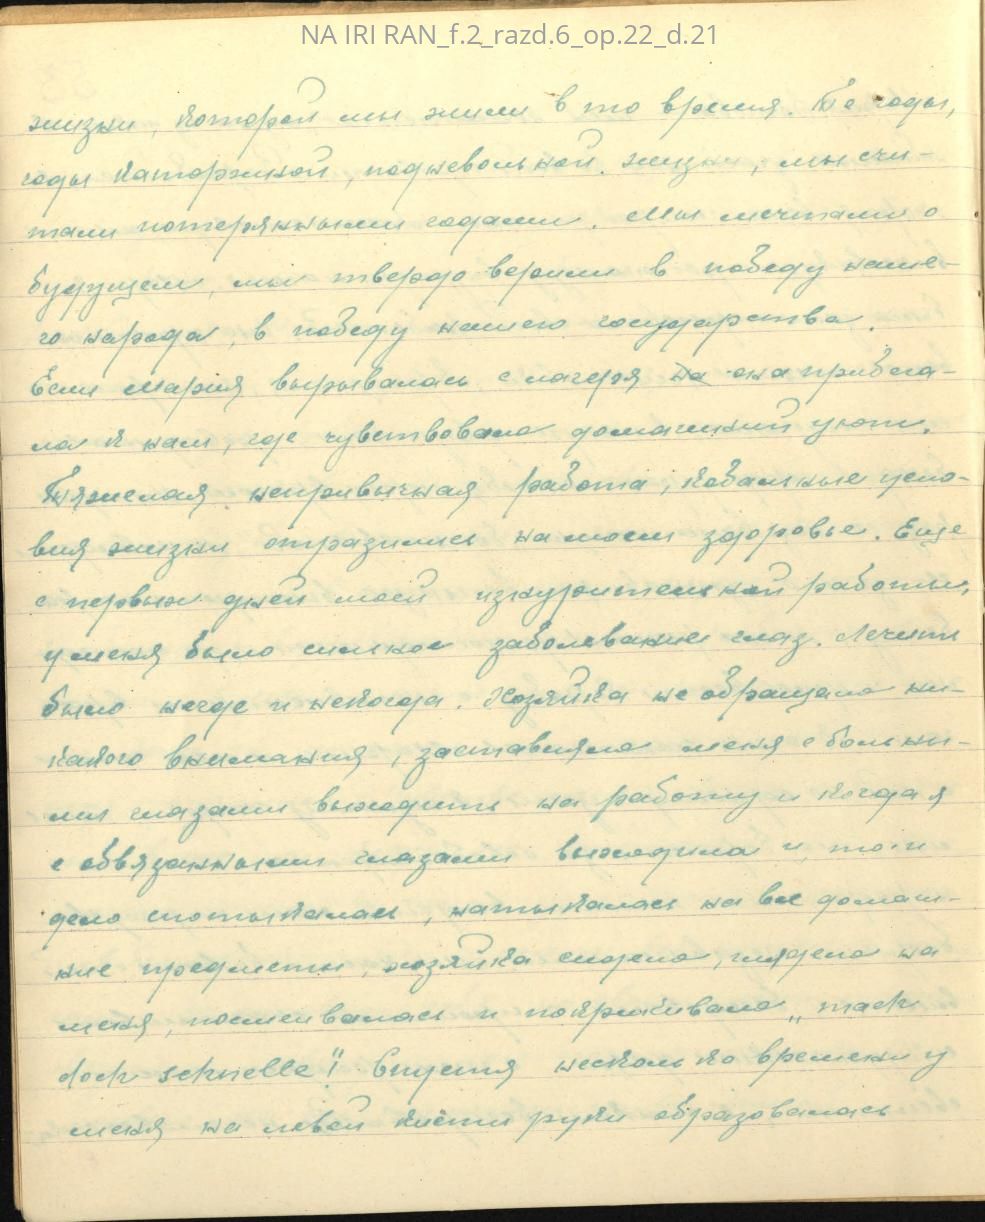 NA IRI RAN_f.2_razd.6_op.22_d.21
жизни, которой мы жили в то время. Те годы,
годы каторжной, подневольной жизни, мы счи-
тали потерянными годами. Мы мечтали о
будущем, мы твердо верили в победу наше-
го народа, в победу нашего государства.
Если Мария вырывалась с лагеря она прибега-
ла к нам, где чувствовала домашний уют.
Тяжелая непривычная работа, кабальные усло-
вия жизни отразились на моем здоровье. Еще
с первых дней моей изнурительной работы,
у меня было сильное заболевание глаз. Лечить
было негде и некогда. Хозяйка не обращала ни-
какого внимания, заставляла меня с больны-
ми глазами выходить на работу и когда я
с обвязанными глазами выходила и, то и
дело спотыкалась, натыкалась на все домаш-
ние предметы, хозяйка сидела, глядела на
меня, посмеивалась и покрикивала „mach
doch schnelle!" Спустя несколько времени у
меня на левой кисти руки образовалась